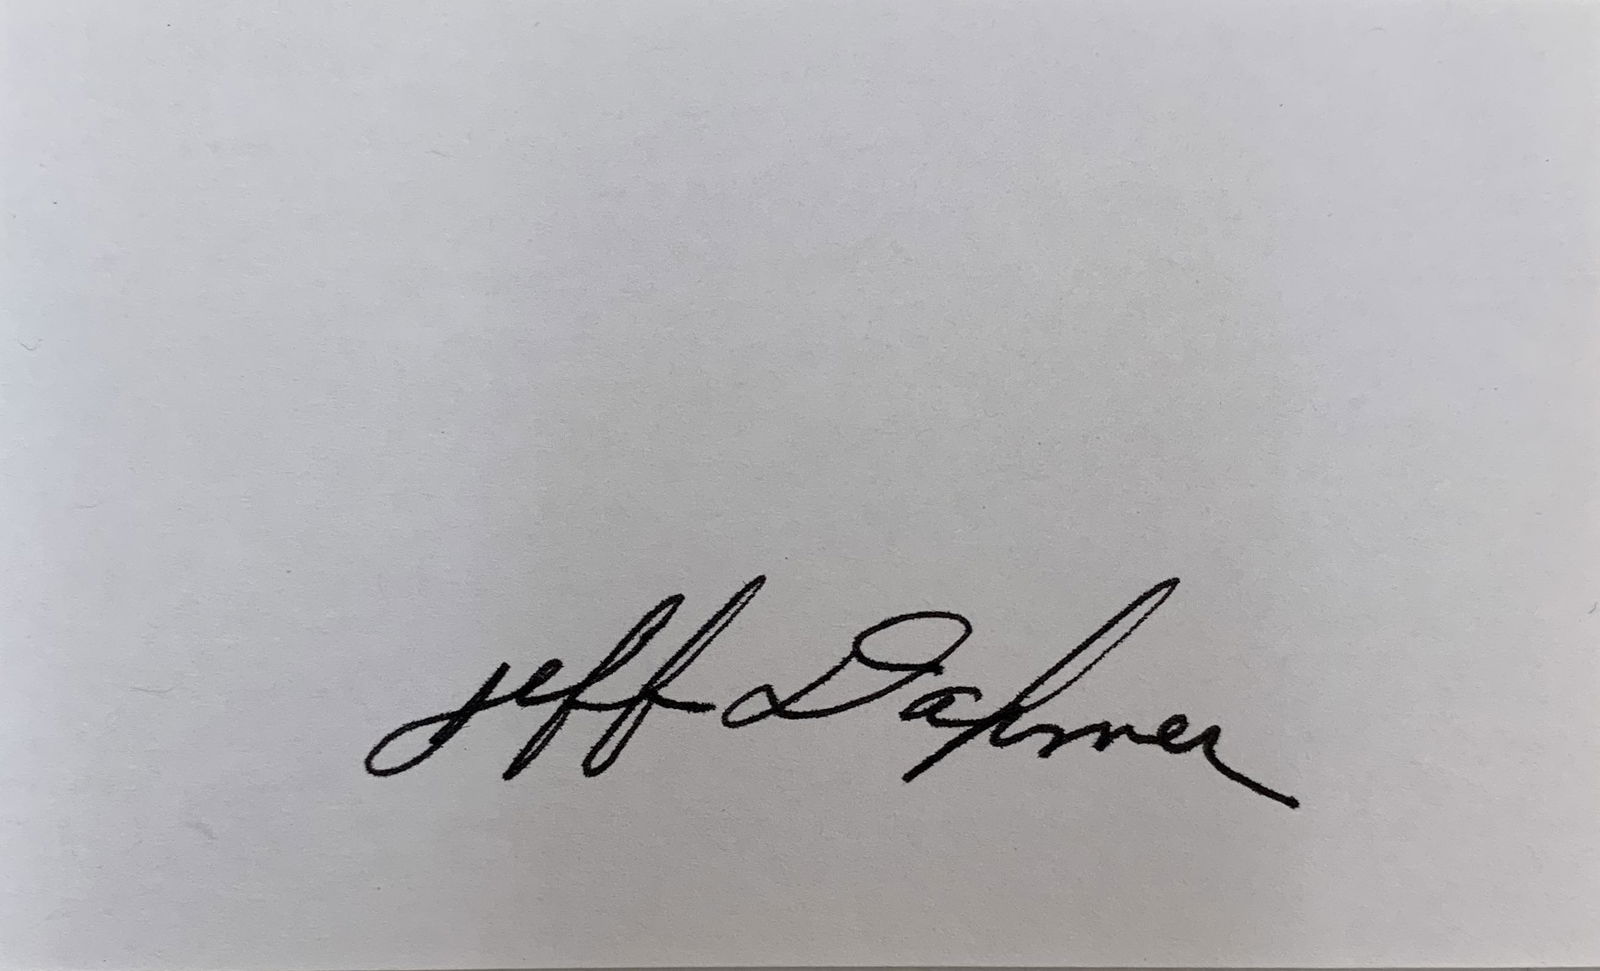 Jeff Dahmer